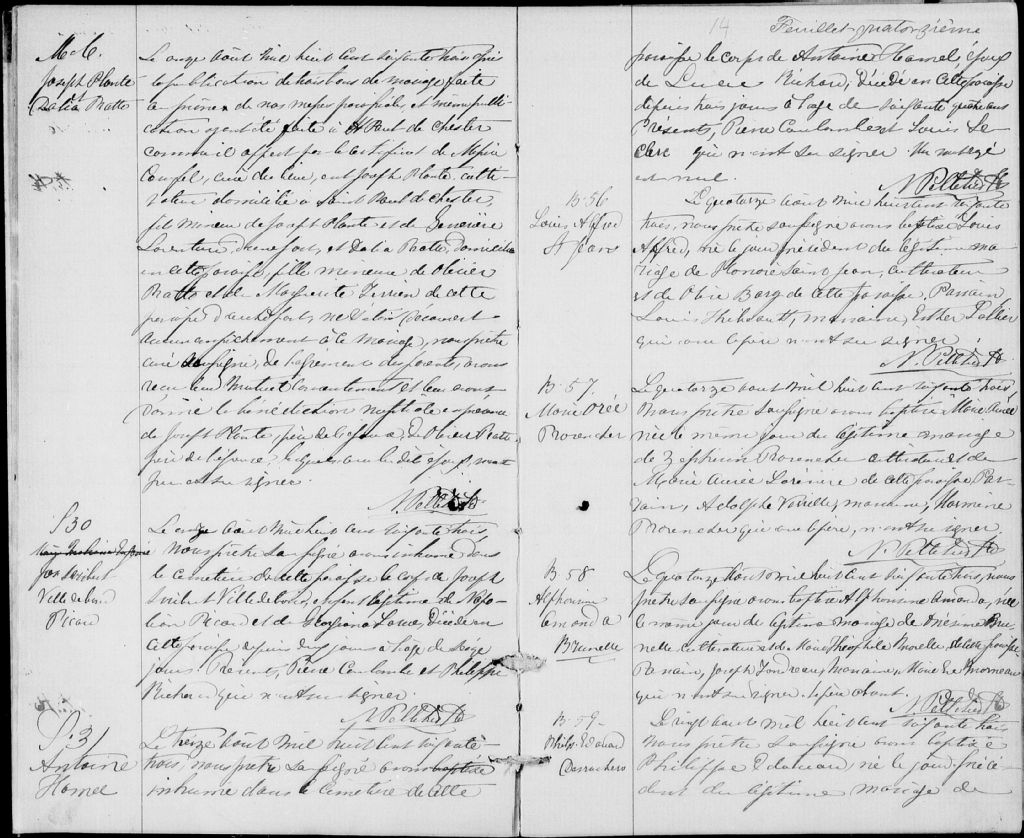 M. 6.
Joseph Plante
Dalia Ratté
Le onze Août Mil huit cent soixante trois, après
la publication de trois bans de mariage faite
au prône de nos messes paroissiales, et même publi-
cation ayant été faite à St Paul de Chester
comme il appert par le certificat de Messire
curé du lieu, ont Joseph Plante, culti-
vateur domicilié à Saint Paul de Chester,
fils mineur de Joseph Plante et de Geneviève
Laventure d'une part, et Dalia Ratté, domiciliée
en cette paroisse, fille mineure de Olivier
Ratté et de Marguerite Terrien de cette
paroisse d'autre part, ne s'étant découvert
aucun empêchement à ce mariage, nous prêtre
curé soussigné, de l'agrément des parents, avons
reçu leur mutuel consentement et leur avons
donné la bénédiction nuptiale en présence
de Joseph Plante, père de l'époux, de Olivier Ratté
père de l'épouse, lesquels ainsi que les dits époux, n'ont
pu signer.
N. Pelletier Ptre
S 30
Joseph
Picard
Le onze Août Mil huit cent soixante trois
Nous prêtre soussigné avons inhumé dans
le cimetière de cette paroisse le corps de Joseph
enfant légitime de Napo-
léon Picard et de Georgiana décédé en
cette paroisse depuis deux jours à l'âge de seize
jours. Présents, Pierre Coulombe et Philippe
Richer qui n'ont su signer.
N. Pelletier Ptre
S. 31
Antoine
Hamel
Le treize Août Mil huit cent soixante
trois, nous prêtre soussigné avons baptisé
inhumé dans le cimetière de cette
14 Feuillet quatorzième
paroisse le corps de Antoine Hamel, époux
de Lucie Richard, décédé en cette paroisse
depuis trois jours à l'âge de soixante quatre ans
Présents, Pierre Coulombe et Louis Le-
clerc qui n'ont su signer. Un mot rayé
est nul.
N. Pelletier Ptre
B 56
Louis Alfred
St Jean
Le quatorze Août Mil huit cent soixante
trois, nous prêtre soussigné avons baptisé Louis
Alfred, né le jour précédent du légitime ma-
riage de Honoré Saint Jean, cultivateur
et de Olive de cette paroisse, Parrain
Louis Thibault, marraine, Esther
qui ainsi que le père n'ont su signer
N. Pelletier Ptre
B. 57
Marie
Provencher
Le quatorze Août Mil huit cent soixante trois
Nous prêtre soussigné avons baptisé Marie
née le même jour du légitime mariage
de Zéphirin Provencher cultivateur et de
Marie de cette paroisse Par-
rain, Adolphe marraine,
Provencher qui ainsi que le père, n'ont su signer
N. Pelletier Ptre
B 58
Alphonsine
Amanda
Brunelle
Le quatorze Août Mil huit cent soixante trois, nous
prêtre soussigné avons baptisé Alphonsine Amanda, née
le même jour du légitime mariage de Onésime Bru-
nelle cultivateur et de Marie de cette paroisse
Parrain, Joseph marraine, Marie
qui n'ont su signer. Le père absent.
N. Pelletier Ptre
B. 59
Philip. Edouard
Le vingt Août Mil huit cent soixante trois
Nous prêtre soussigné avons baptisé
Philippe Edouard, né le jour précé-
dent du légitime mariage de